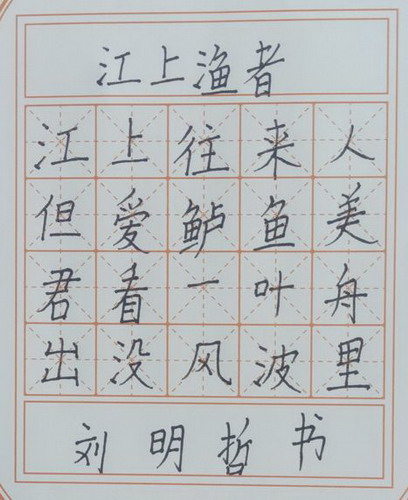 江上渔者
江上往来人
但爱鲈鱼美
君看一叶舟
出没风波里
刘明哲书